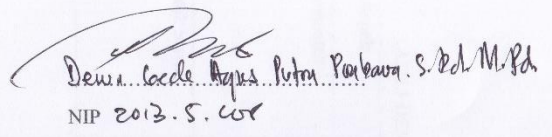 Dewa Gede Agus Putra Prabawa. S.Pd. M.Pd.
NIP 2013. 5.